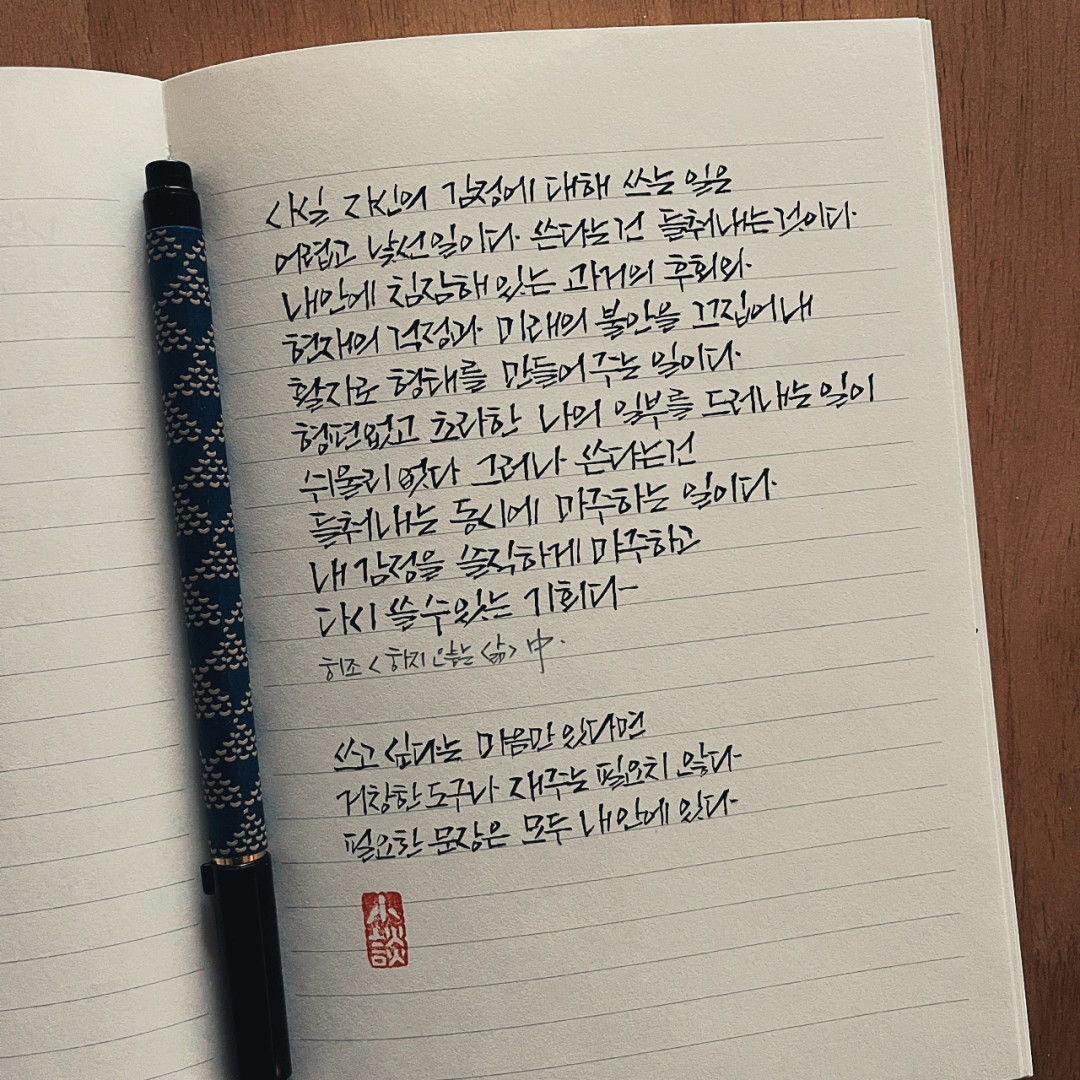 사실 자신의 감정에 대해 쓰는 일은
어렵고 낯선일이다. 쓴다는건 들춰내는것이다.
내안에 침잠해있는 과거의 후회와
현재의 걱정과 미래의 불안을 끄집어내
활자로 형태를 만들어주는 일이다.
형편없고 초라한 나의 일부를 드러내는일이
쉬울리없다 그러나 쓴다는건
들춰내는 동시에 마주하는 일이다.
내감정을 솔직하게 마주하고
다시 쓸수있는 기회다
희조 <하지 않는 삶> 中.
쓰고 싶다는 마음만 있다면
거창한도구나 재주는 필요치 않다
필요한 문장은 모두 내안에 있다
小談